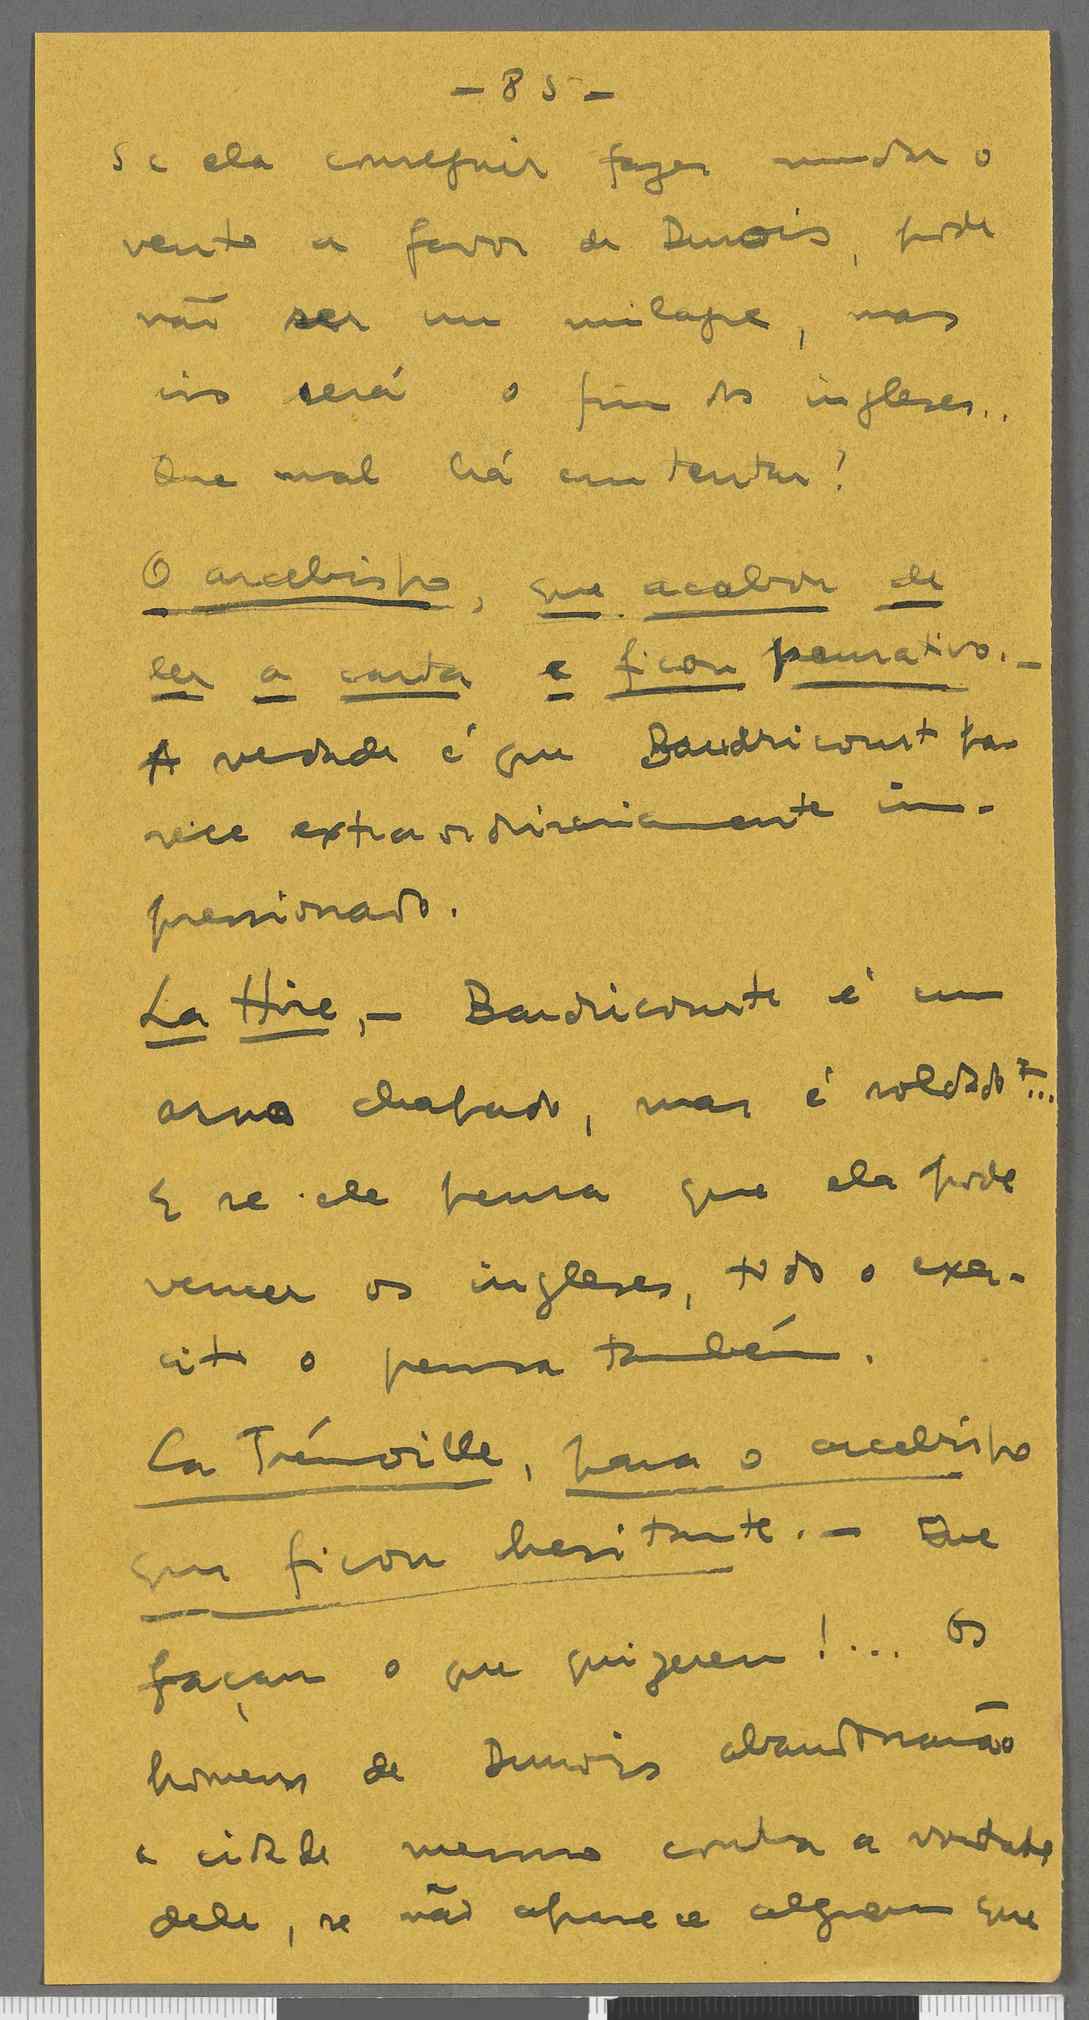 - 85 -
Se ela conseguir fazer mudar o
vento a favor de Dunois, pode
não ser um milagre, mas
isso será o fim dos ingleses..
Que mal há em tentar?
O arcebispo, que acabou de
ler a carta e ficou pensativo. -
A verdade é que Baudricourt pa-
rece extraordinariamente im-
pressionado.
La Hire, - Baudricourt é um
asno chapado, mas é soldado...
E se ele pensa que ela pode
vencer os ingleses, todo o exer-
cito o pensa também.
La Trémoille, para o arcebispo
que ficou hesitante. - Que
façam o que quizerem!... Os
homens de Dunois abandonarão
a cidade mesmo contra a vontade
dele, se não aparece alguem que